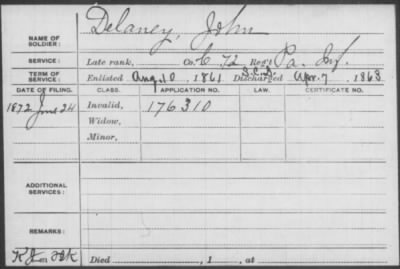 NAME OF SOLDIER: Delaney, John
SERVICE: Late rank, Co. C 72 Reg't Pa. Inf.
TERM OF SERVICE: Enlisted Aug. 10, 1861 Discharged S.C.D. Apr. 7, 1863
DATE OF FILING. CLASS. APPLICATION NO. LAW. CERTIFICATE NO.
1872 June 24 Invalid, 176310
Widow,
Minor,
ADDITIONAL SERVICES:
REMARKS:
Died , 1 , at